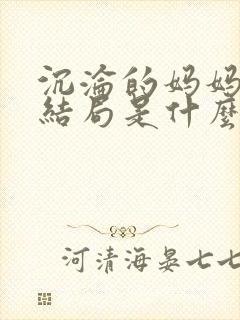 沉淪的妈妈
結局是什麼
河清海晏七七